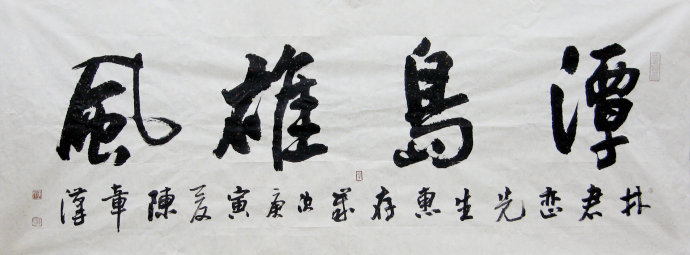 潭島雄風
林君恋先生惠存歲次庚寅夏陳章漢